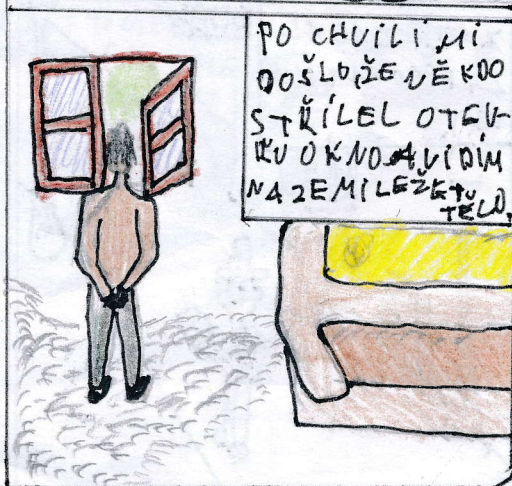 PO CHVILI MI
DOŠLO, ŽE NĚKDO
STŘÍLEL OTEV-
ŘU OKNO A VIDÍM
NA ZEMI LEŽET
TĚLO.